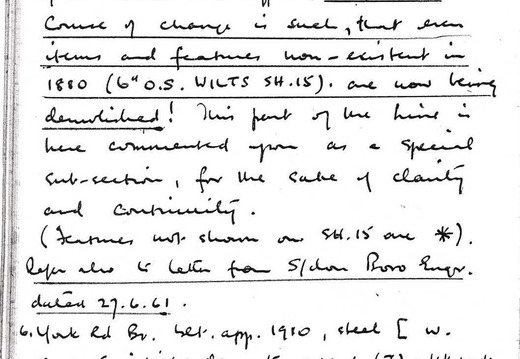 Course of change is such, that even
items and features non-existent in
1880 (6" O.S. WILTS SH.15). are now being
demolished! This part of the line is
here commented upon as a special
sub-section, for the sake of clarity
and continuity.
(Features not shown on SH.15 are *).
Refer also to letter from S/don Boro Engr.
dated 27.6.61.
6. York Rd Br. bet. app. 1910, steel [ w.